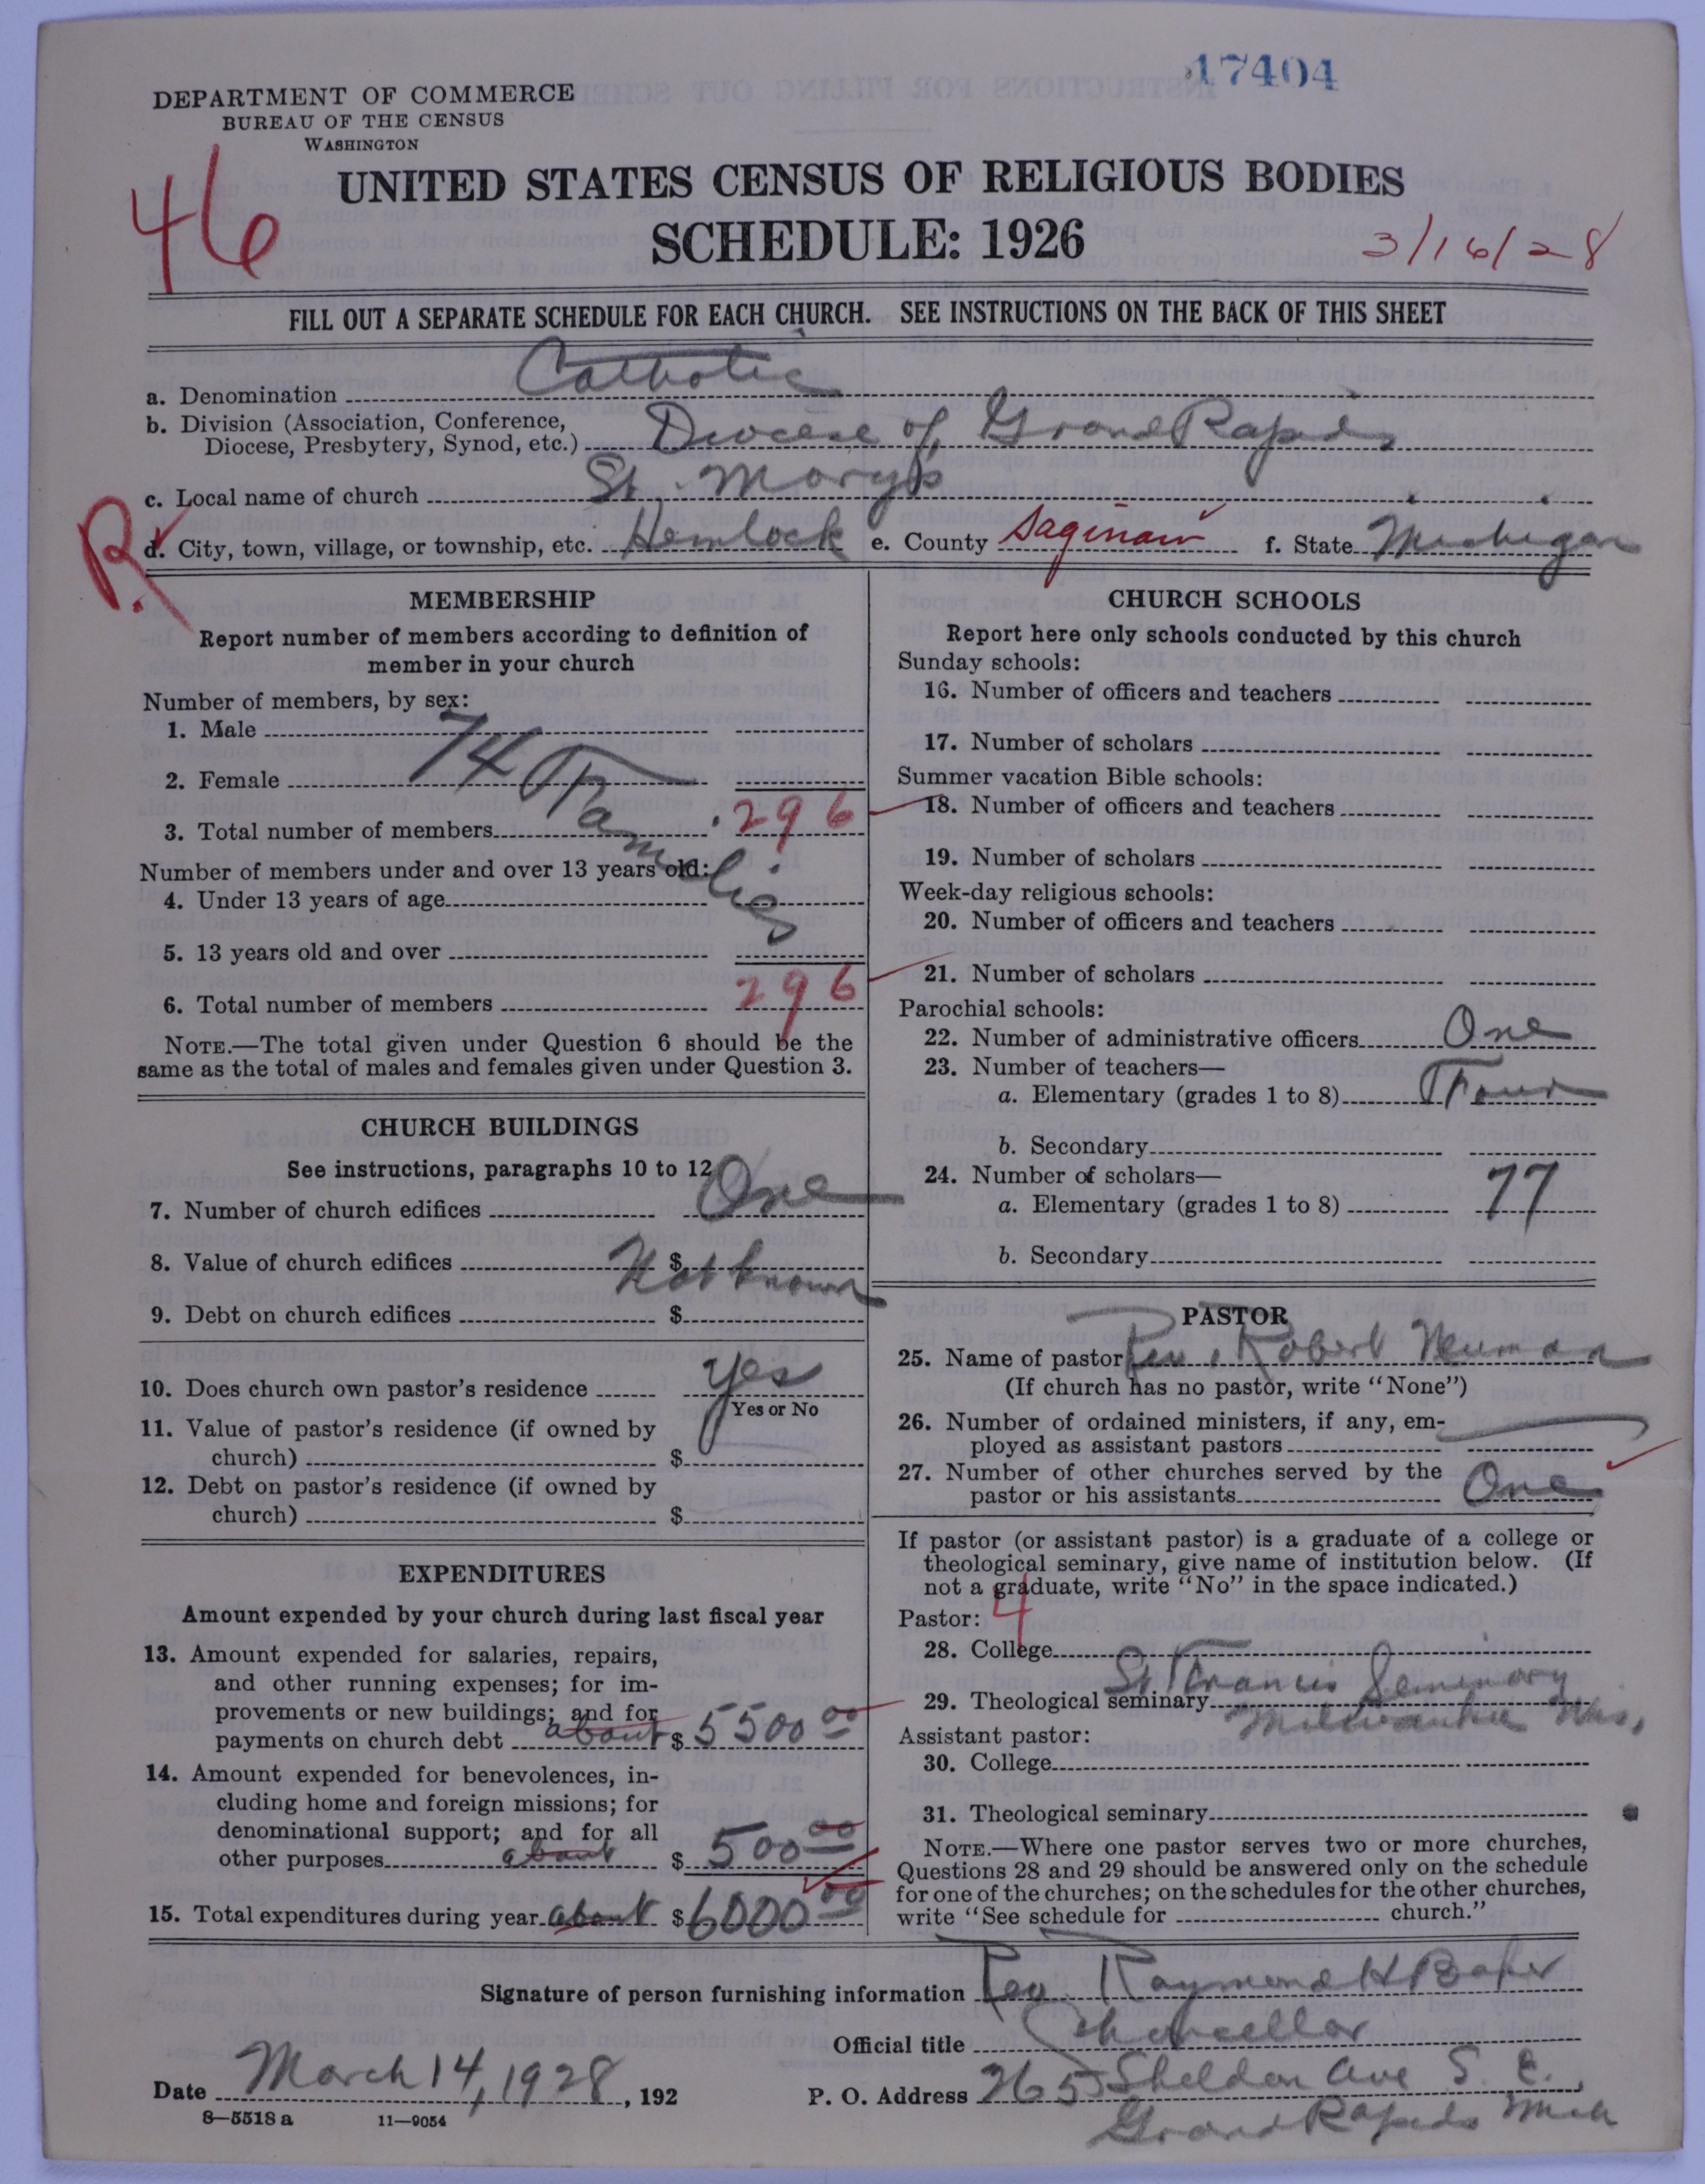 17404
DEPARTMENT OF COMMERCE
BUREAU OF THE CENSUS
WASHINGTON
46
UNITED STATES CENSUS OF RELIGIOUS BODIES
SCHEDULE: 1926
3/16/28
FILL OUT A SEPARATE SCHEDULE FOR EACH CHURCH. SEE INSTRUCTIONS ON THE BACK OF THIS SHEET
a. Denomination Catholic
b. Division (Association, Conference,
Diocese, Presbytery, Synod, etc.) Diocese of Grand Rapids
c. Local name of church St. Mary's
R.
d. City, town, village, or township, etc. Hemlock e. County Saginaw f. State Michigan
MEMBERSHIP
Report number of members according to definition of
member in your church
Number of members, by sex:
1. Male
2. Female
74 Families
3. Total number of members 296
Number of members under and over 13 years old:
4. Under 13 years of age
5. 13 years old and over
6. Total number of members 296
NOTE.—The total given under Question 6 should be the
same as the total of males and females given under Question 3.
CHURCH BUILDINGS
See instructions, paragraphs 10 to 12
7. Number of church edifices One
8. Value of church edifices $ Not known
9. Debt on church edifices $
10. Does church own pastor's residence yes
Yes or No
11. Value of pastor's residence (if owned by
church) $
12. Debt on pastor's residence (if owned by
church) $
EXPENDITURES
Amount expended by your church during last fiscal year
13. Amount expended for salaries, repairs,
and other running expenses; for im-
provements or new buildings; and for
payments on church debt about $ 5500 00
14. Amount expended for benevolences, in-
cluding home and foreign missions; for
denominational support; and for all
other purposes about $ 500 00
15. Total expenditures during year about $ 6000 00
CHURCH SCHOOLS
Report here only schools conducted by this church
Sunday schools:
16. Number of officers and teachers
17. Number of scholars
Summer vacation Bible schools:
18. Number of officers and teachers
19. Number of scholars
Week-day religious schools:
20. Number of officers and teachers
21. Number of scholars
Parochial schools:
22. Number of administrative officers One
23. Number of teachers—
a. Elementary (grades 1 to 8) Four
b. Secondary
24. Number of scholars—
a. Elementary (grades 1 to 8) 77
b. Secondary
PASTOR
25. Name of pastor Rev. Robert Neuman
(If church has no pastor, write "None")
26. Number of ordained ministers, if any, em-
ployed as assistant pastors
27. Number of other churches served by the
pastor or his assistants One
If pastor (or assistant pastor) is a graduate of a college or
theological seminary, give name of institution below. (If
not a graduate, write "No" in the space indicated.)
Pastor: 4
28. College
St Francis Seminary
29. Theological seminary Milwaukee Wis.
Assistant pastor:
30. College
31. Theological seminary
NOTE.—Where one pastor serves two or more churches,
Questions 28 and 29 should be answered only on the schedule
for one of the churches; on the schedules for the other churches,
write "See schedule for church."
Signature of person furnishing information Rev Raymond H Baker
Official title Chancellor
Date March 14, 1928, 192 P. O. Address 265 Sheldon Ave S. E.,
8—5518 a 11—9054 Grand Rapids Mich